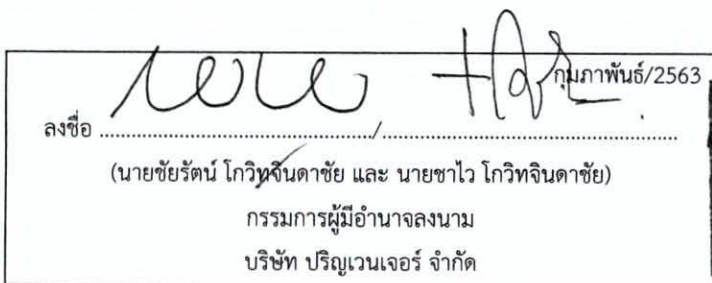 กุมภาพันธ์/2563
ลงชื่อ ................................................/....................................................
(นายชัยรัตน์ โกวิทจินดาชัย และ นายชาไว โกวิทจินดาชัย)
กรรมการผู้มีอำนาจลงนาม
บริษัท ปริญเวนเจอร์ จำกัด